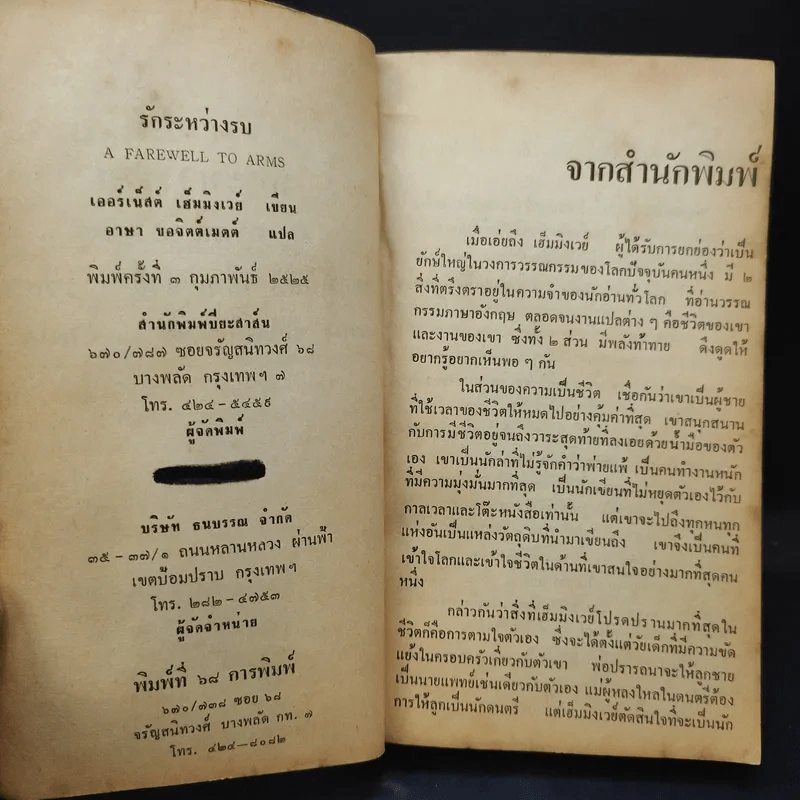 รักระหว่างรบ
A FAREWELL TO ARMS
เออร์เน็สต์ เฮ็มมิงเวย์ เขียน
อาษา ขอจิตต์เมตต์ แปล
พิมพ์ครั้งที่ ๓ กุมภาพันธ์ ๒๕๒๕
สำนักพิมพ์ปิยะสาส์น
๖๗๐/๗๘๗ ซอยจรัญสนิทวงศ์ ๖๘
บางพลัด กรุงเทพฯ ๗
โทร. ๔๒๔-๕๔๕๙
ผู้จัดพิมพ์
บริษัท ธนบรรณ จำกัด
๓๕-๓๗/๑ ถนนหลานหลวง ผ่านฟ้า
เขตป้อมปราบ กรุงเทพฯ
โทร. ๒๘๒-๔๗๕๓
ผู้จัดจำหน่าย
พิมพ์ที่ ๖๘ การพิมพ์
๖๗๐/๗๓๘ ซอย ๖๘
จรัญสนิทวงศ์ บางพลัด กท. ๗
โทร. ๔๒๔-๘๐๘๒
จากสำนักพิมพ์
เมื่อเอ่ยถึง เฮ็มมิงเวย์ ผู้ได้รับการยกย่องว่าเป็น
ยักษ์ใหญ่ในวงการวรรณกรรมของโลกปัจจุบันคนหนึ่ง มี ๒
สิ่งที่ตรึงตราอยู่ในความจำของนักอ่านทั่วโลก ที่อ่านวรรณ
กรรมภาษาอังกฤษ ตลอดจนงานแปลต่าง ๆ คือชีวิตของเขา
และงานของเขา ซึ่งทั้ง ๒ ส่วน มีพลังท้าทาย ดึงดูดให้
อยากรู้อยากเห็นพอ ๆ กัน
ในส่วนของความเป็นชีวิต เชื่อกันว่าเขาเป็นผู้ชาย
ที่ใช้เวลาของชีวิตให้หมดไปอย่างคุ้มค่าที่สุด เขาสนุกสนาน
กับการมีชีวิตอยู่จนถึงวาระสุดท้ายที่ลงเอยด้วยน้ำมือของตัว
เอง เขาเป็นนักล่าที่ไม่รู้จักคำว่าพ่ายแพ้ เป็นคนทำงานหนัก
ที่มีความมุ่งมั่นมากที่สุด เป็นนักเขียนที่ไม่หยุดตัวเองไว้กับ
กาลเวลาและโต๊ะหนังสือเท่านั้น แต่เขาจะไปถึงทุกหนทุก
แห่งอันเป็นแหล่งวัตถุดิบที่นำมาเขียนถึง เขาจึงเป็นคนที่
เข้าใจโลกและเข้าใจชีวิตในด้านที่เขาสนใจอย่างมากที่สุดคน
หนึ่ง
กล่าวกันว่าสิ่งที่เฮ็มมิงเวย์โปรดปรานมากที่สุดใน
ชีวิตก็คือการตามใจตัวเอง ซึ่งจะได้ตั้งแต่วัยเด็กที่มีความขัด
แย้งในครอบครัวเกี่ยวกับตัวเขา พ่อปรารถนาจะให้ลูกชาย
เป็นนายแพทย์เช่นเดียวกับตัวเอง แม่ผู้หลงใหลในดนตรีต้อง
การให้ลูกเป็นนักดนตรี แต่เฮ็มมิงเวย์ตัดสินใจที่จะเป็นนัก